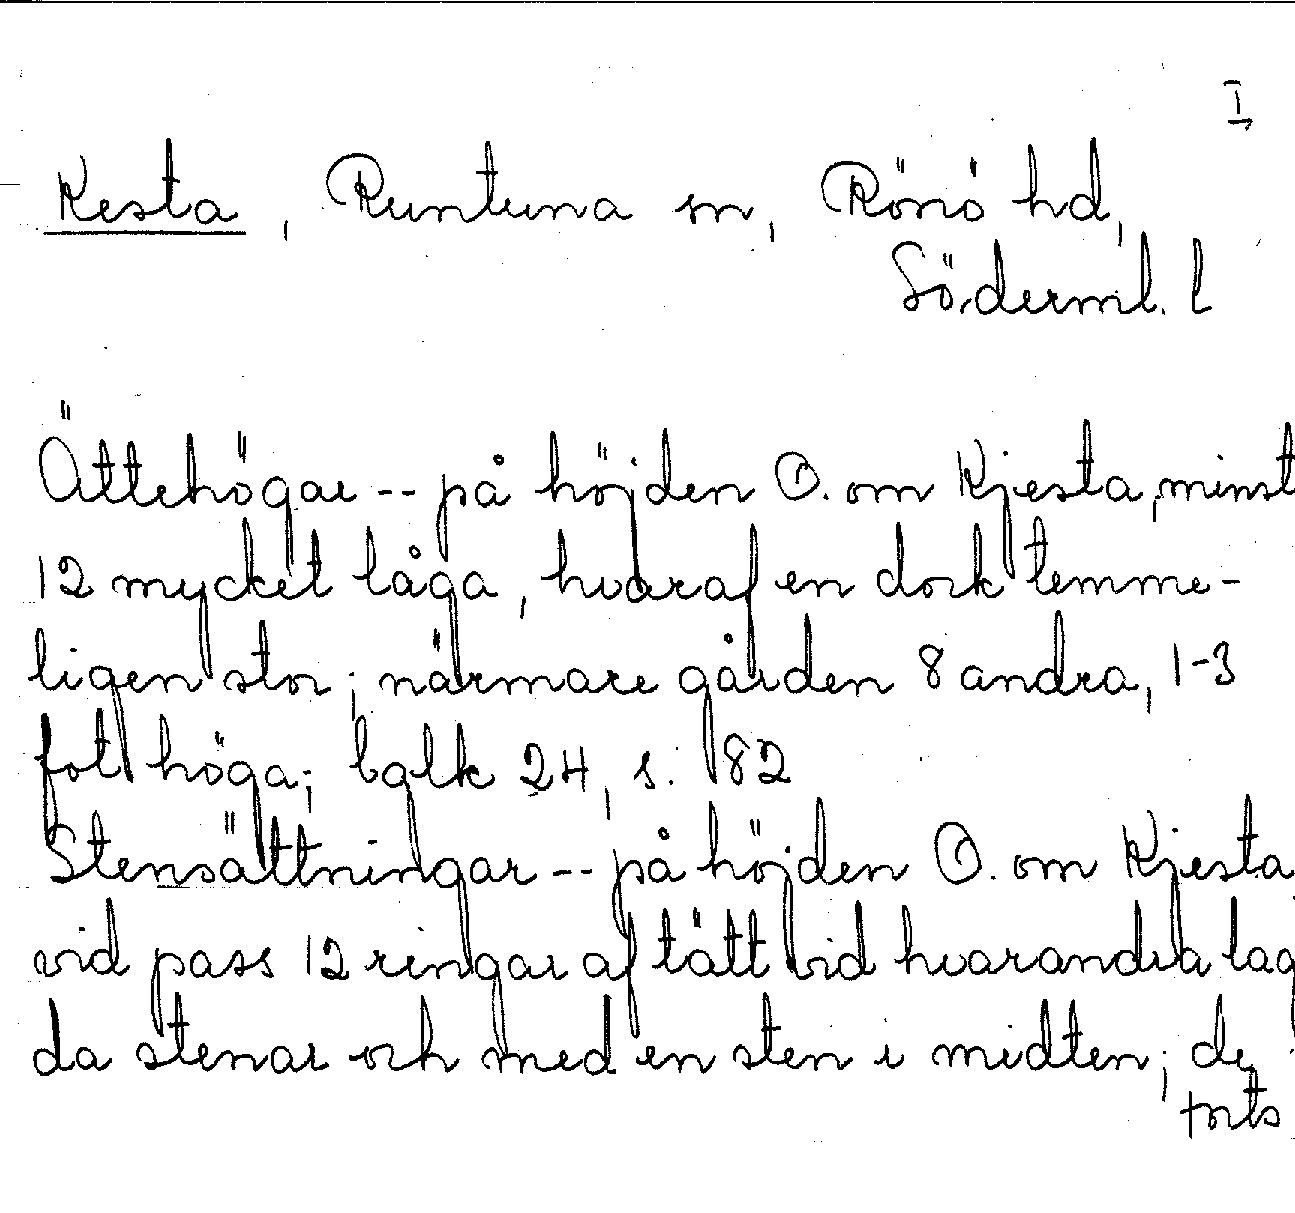 I
Kesta, Runtuna sn, Rönö hd,
Söderml. l
Ättehögar -- på höjden O. om Kjesta, minst
12 mycket låga, hvaraf en dock temme-
ligen stor; närmare gården 8 andra, 1-3
fot höga; balk 24, s. 182
Stensättningar -- på höjden O. om Kjesta
vid pass 12 ringar af tätt vid hvarandra lag
da stenar och med en sten i midten; de
forts